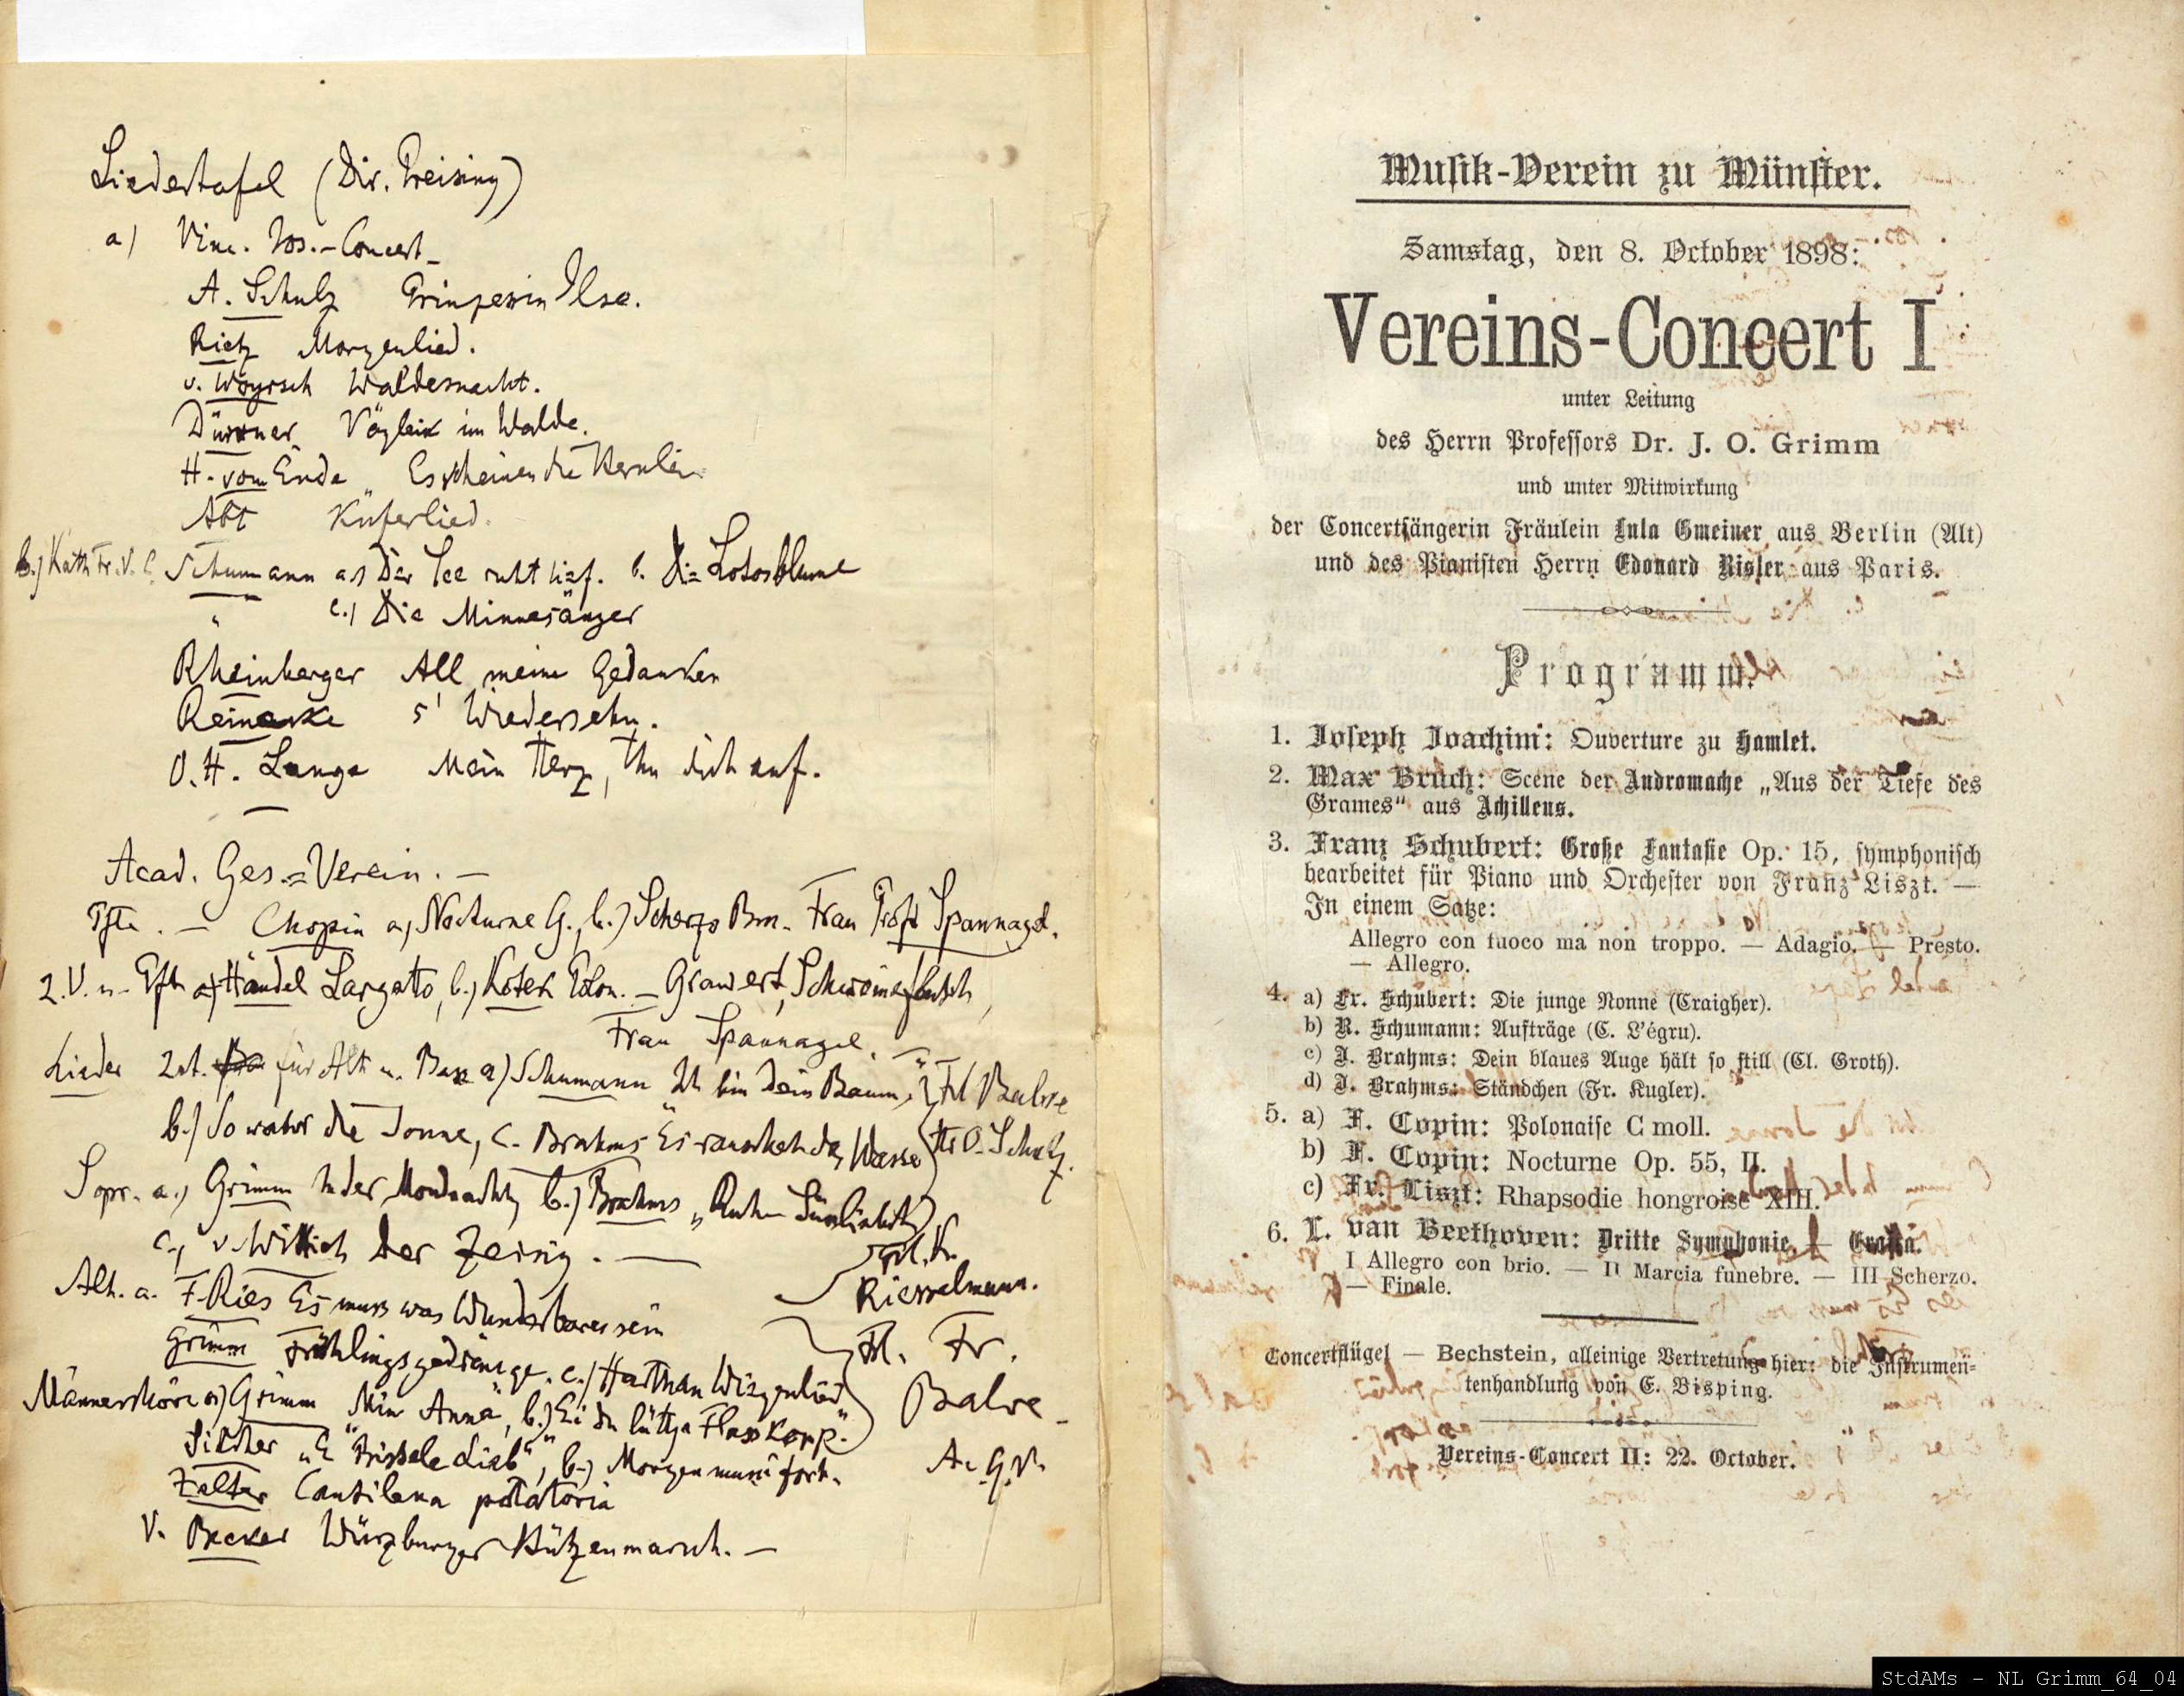 Liedertafel (Dir. Preising)
a) Vinc. Jos.-Concert
A. Schulz Prinzessin Ilse.
Rietz Morgenlied.
v. Woyrsch Waldesnacht.
Dürrner Vöglein im Walde.
H. vom Ende Es scheinen die Sternlein
Abt Küferlied.
b.) Kath. Fr. V. C. Schumann a) Der See ruht tief. b. Die Lotosblume
" c.) Die Minnesänger
Rheinberger All meine Gedanken
Reinecke s' Wiedersehn.
O. H. Lange Mein Herz, thu dich auf.
Acad. Ges.=Verein. —
Pfte. — Chopin a) Nocturne G., b.) Scherzo Bm. Frau Prof Spannagel.
2. V. u. Pfte a) Händel Largetto, b.) Kotek Polon. — Grawert,
Frau Spannagel.
Lieder 2st. für Alt u. Bass a) Schumann Ich bin Dein Baum, Frl Balve
b.) So wahr die Sonne, c. Brahms Es rauschet das Wasser Hr O. Schulz.
Sopr. a.) Grimm In der Mondnacht, b.) Brahms „Ruhe Süssliebch
c., v. Wittich Der Zeisig. — Frl. Fr.
Riesselmann.
Alt. a. F. Ries Es muss was Wunderbares sein
Grimm Frühlingsgedränge. c.) Harthan Wiegenlied Frl. Fr.
Balve —
Männerchöre a) Grimm „Min Anna", b.) Ei du lüttje Flasskopp."
Silcher „E bissele Lieb", b.) Morgen muss i fort. A. G. V.
Zelter Cantilena potatoria
V. Becker Würzburger Schützenmarsch. —
Musik-Verein zu Münster.
Samstag, den 8. October 1898:
Vereins-Concert I
unter Leitung
des Herrn Professors Dr. J. O. Grimm
und unter Mitwirkung
der Concertsängerin Fräulein Lula Gmeiner aus Berlin (Alt)
und des Pianisten Herrn Edouard Risler aus Paris.
Programm.
1. Joseph Joachim: Ouverture zu Hamlet.
2. Max Bruch: Scene der Andromache „Aus der Tiefe des
Grames" aus Achilleus.
3. Franz Schubert: Große Fantasie Op. 15, symphonisch
bearbeitet für Piano und Orchester von Franz Liszt. —
In einem Satze:
Allegro con fuoco ma non troppo. — Adagio. — Presto.
— Allegro.
4. a) Fr. Schubert: Die junge Nonne (Craigher).
b) R. Schumann: Aufträge (C. L'égru).
c) J. Brahms: Dein blaues Auge hält so still (Cl. Groth).
d) J. Brahms: Ständchen (Fr. Kugler).
5. a) F. Copin: Polonaise C moll.
b) F. Copin: Nocturne Op. 55, II.
c) Fr. Liszt: Rhapsodie hongroise XIII.
6. L. van Beethoven: Dritte Symphonie — Eroïka.
I Allegro con brio. — II Marcia funebre. — III Scherzo.
— Finale.
Concertflügel — Bechstein, alleinige Vertretung hier: die Instrumen-
tenhandlung von E. Bisping.
Vereins-Concert II: 22. October.
StdAMs - NL Grimm_64_04